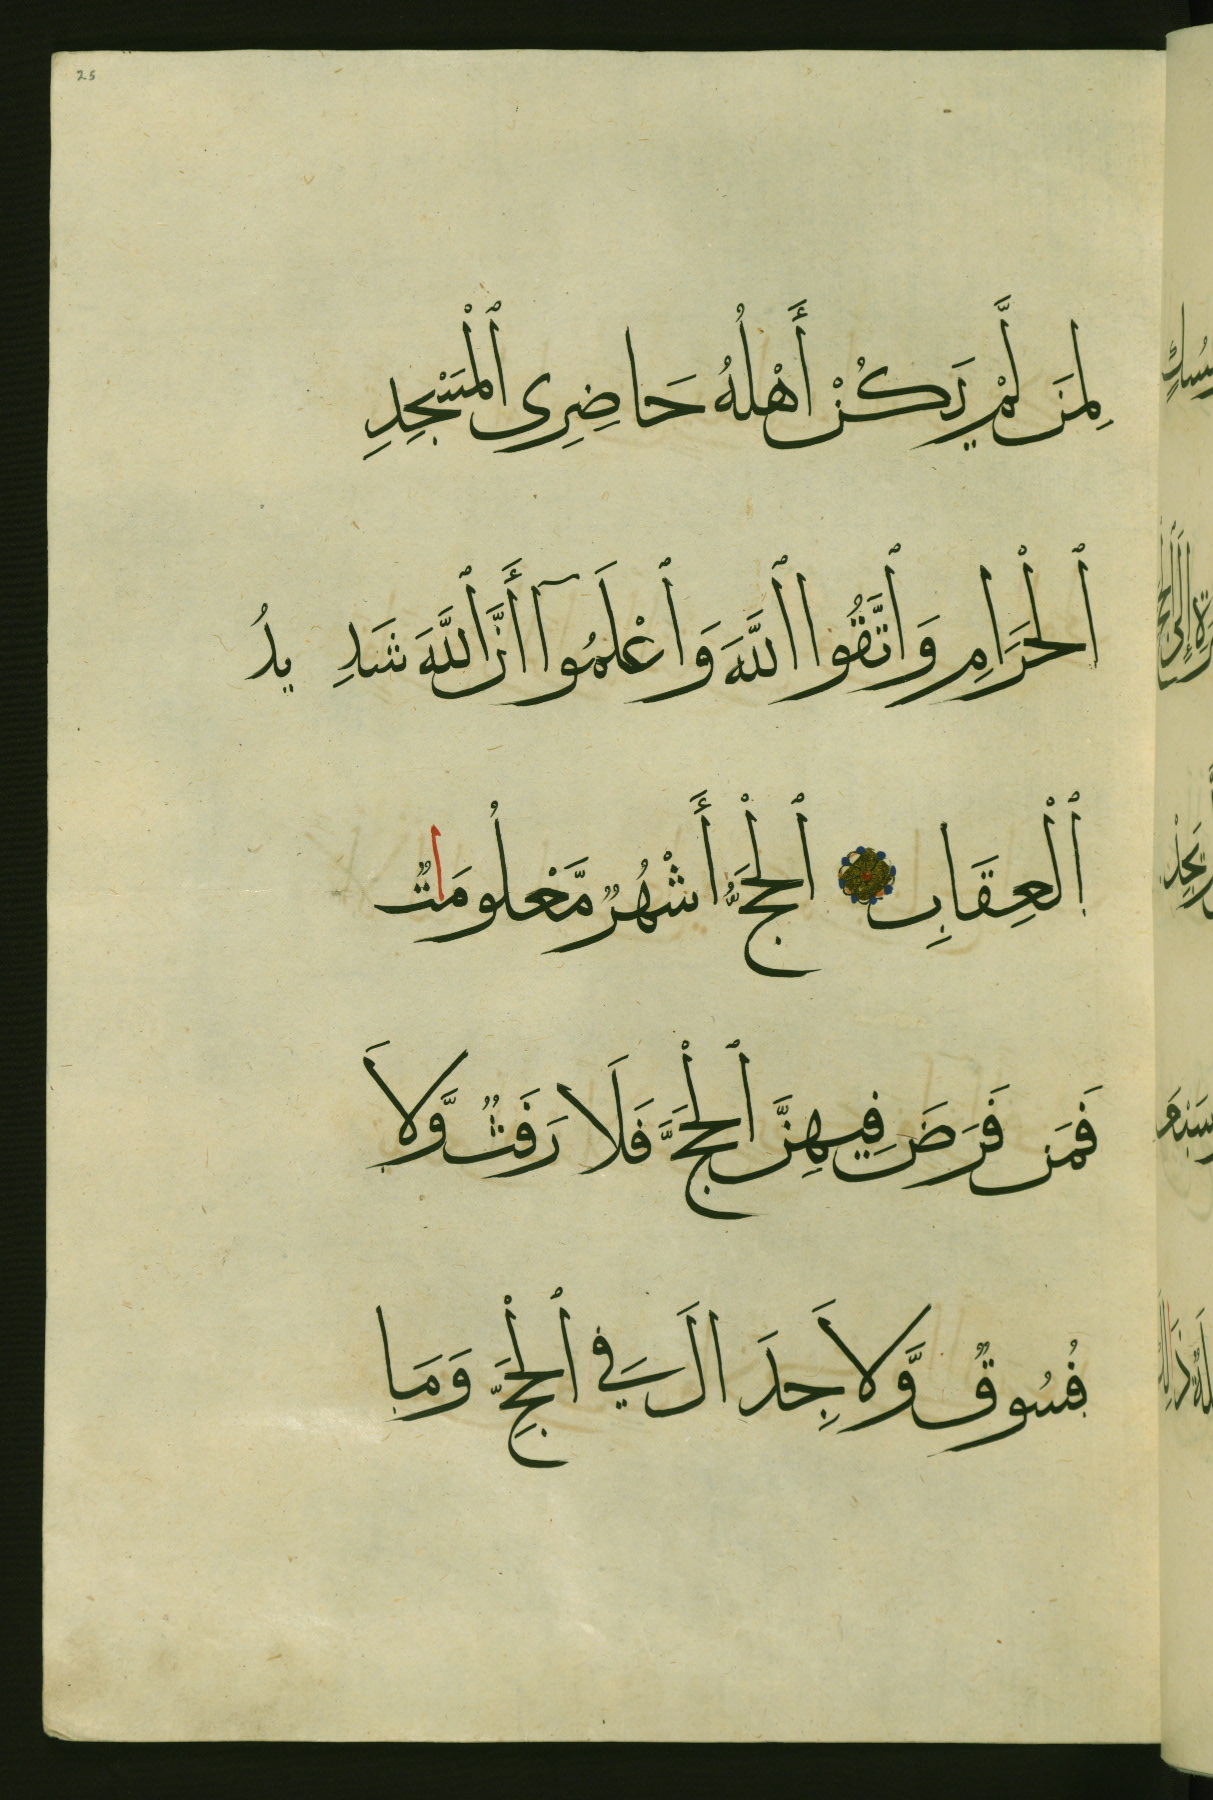 25
لِمَن لَّمْ يَكُنْ أَهْلُهُ حَاضِرِى ٱلْمَسْجِدِ
ٱلْحَرَامِ وَٱتَّقُوا ٱللَّهَ وَٱعْلَمُوآ أَنَّ ٱللَّهَ شَدِيدُ
ٱلْعِقَابِ ٱلْحَجُّ أَشْهُرٌ مَّعْلُومَاتٌ
فَمَن فَرَضَ فِيهِنَّ ٱلْحَجَّ فَلَا رَفَثٌ وَّلَا
فُسُوقٌ وَّلَا جِدَالَ فِي ٱلْحَجِّ وَمَا